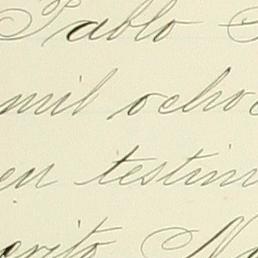 Pablo
mil ocho
en testim